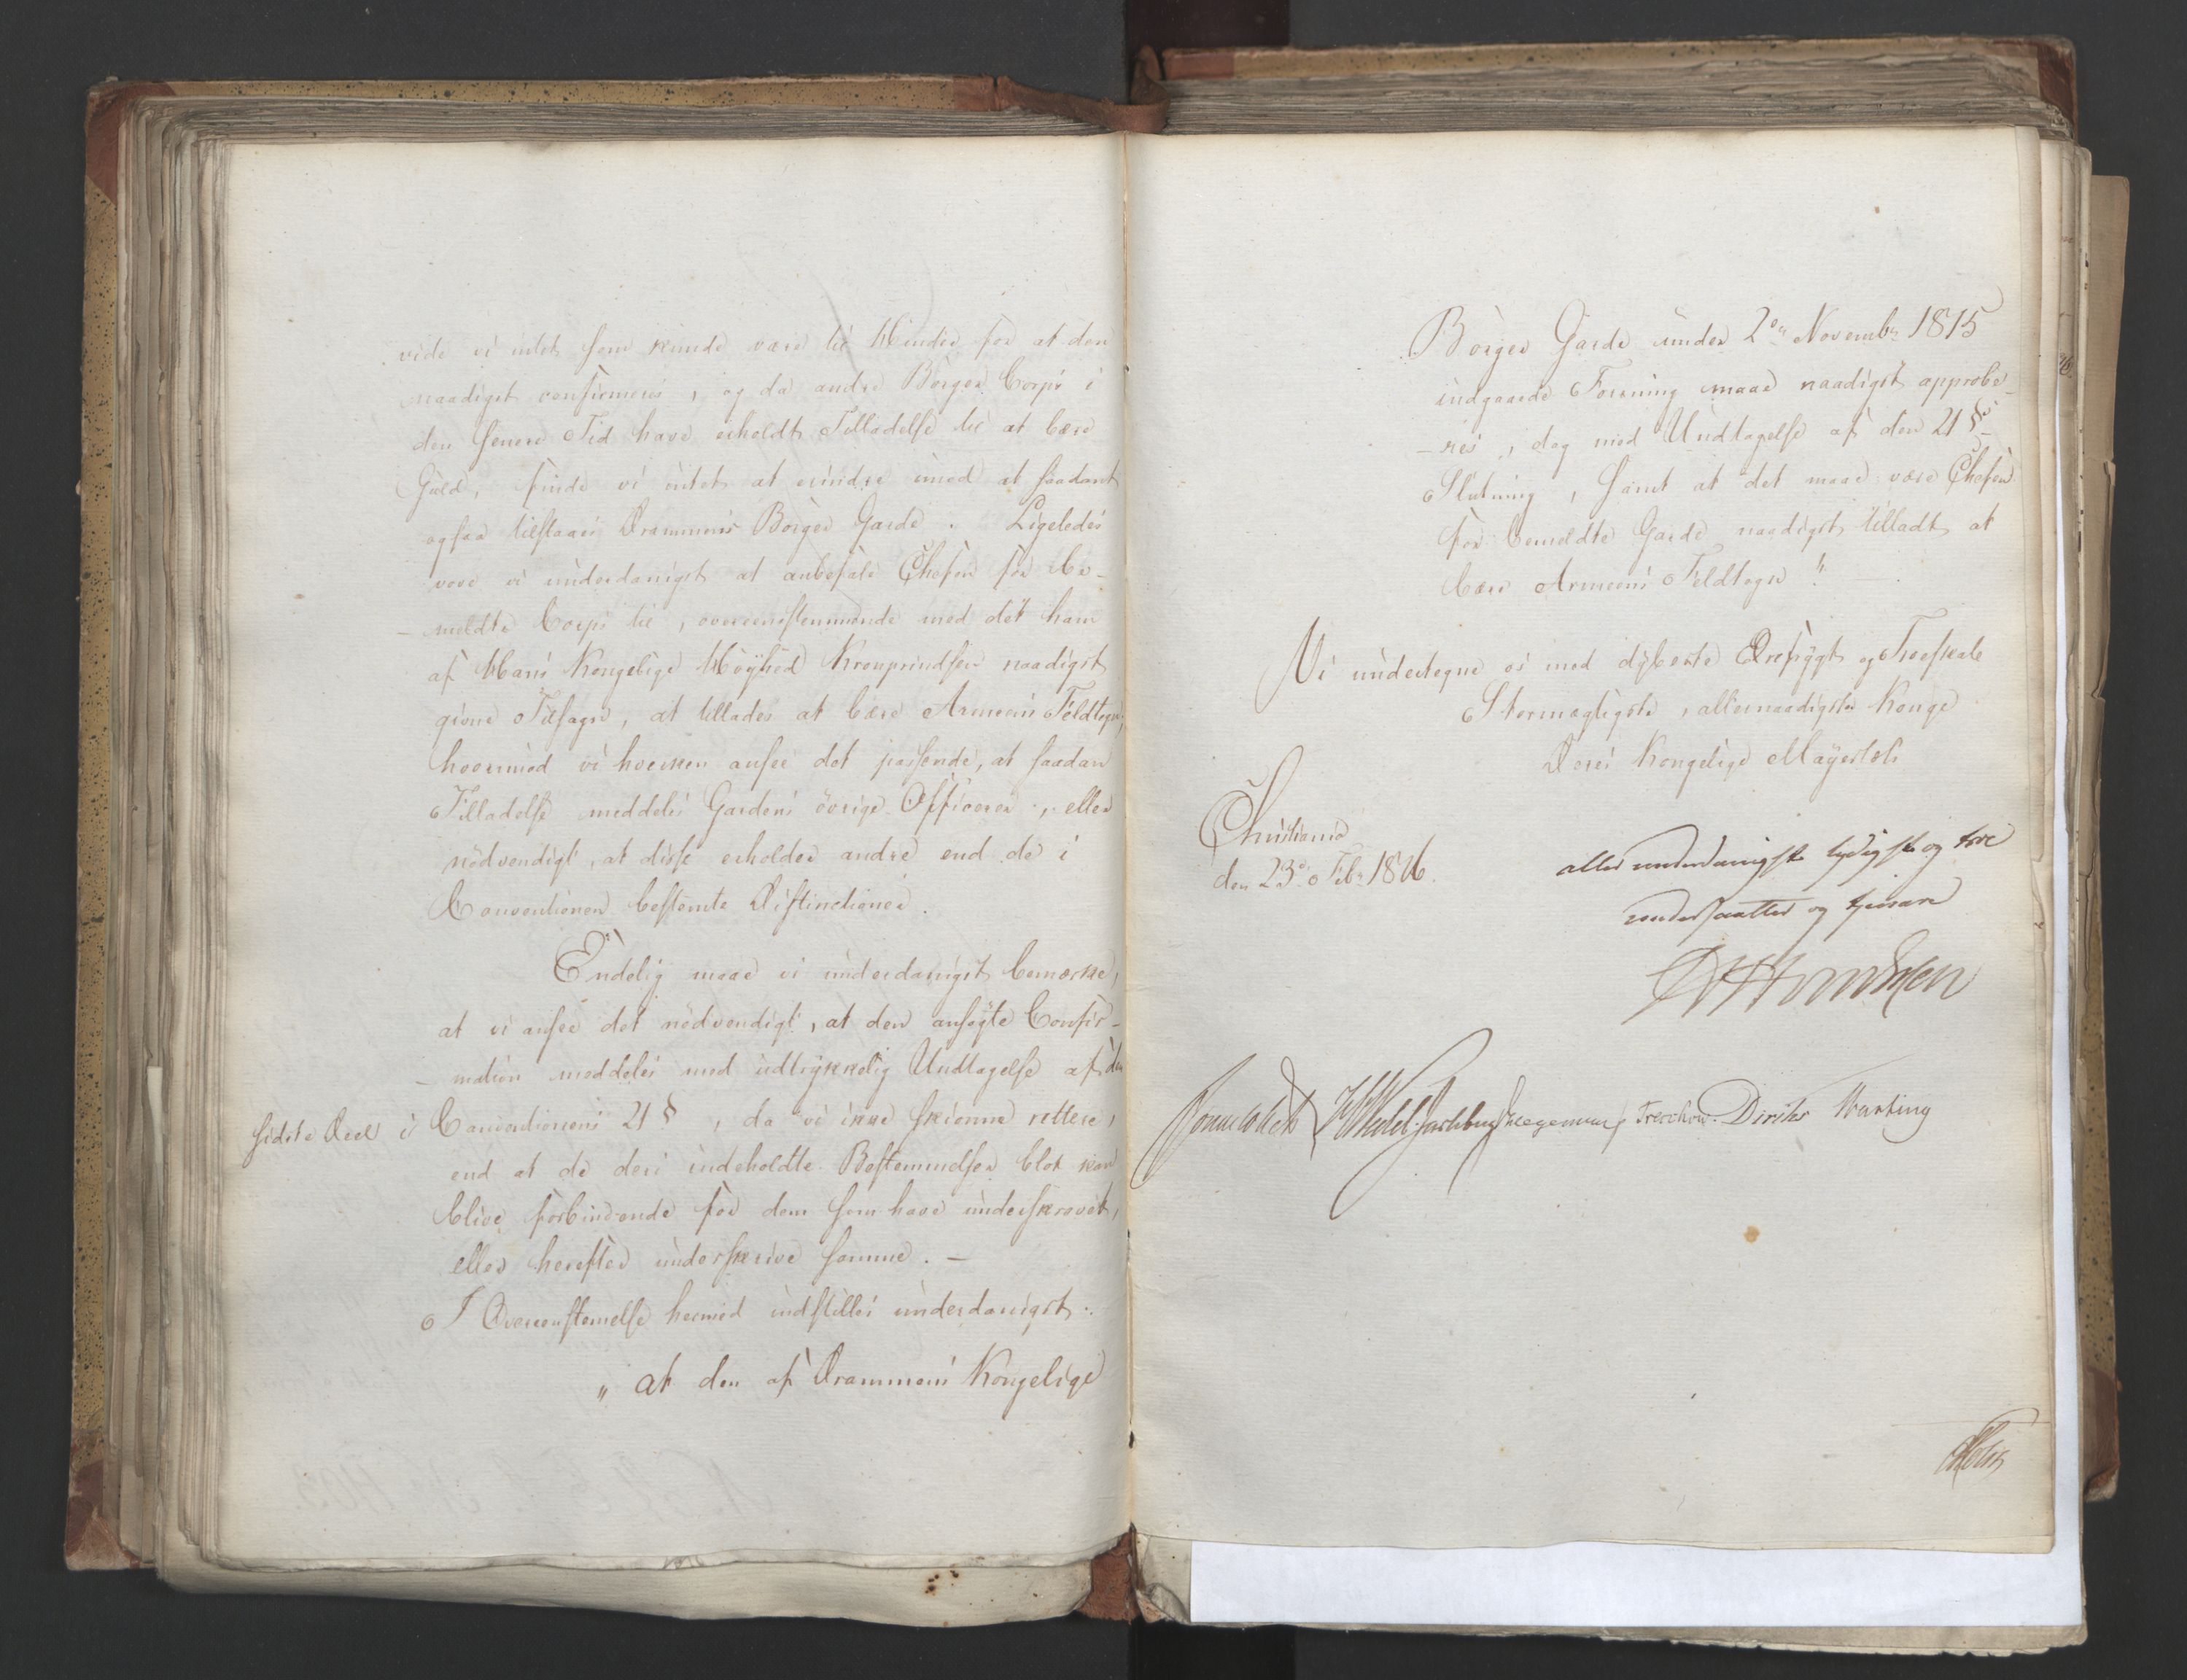 vide vi intet som kunde være til Hinder for at den
naadigst confirmeres, og da andre Borger Corps i
den senere Tid have erholdt Tilladelse til at bære
Guld, finde vi intet at erindre imod at saadant
ogsaa tilstaaes Drammens Borger Garde. Ligeledes
vove vi underdanigst at anbefale Chefen for be-
-meldte Corps til, overeensstemmende med det ham
af Hans Kongelige Høyhed Kronprindsen naadigst
givne Tilsagn, at tillades at bære Armeens Feldtegn,
hvorimod vi hverken ansee det passende, at saadan
Tilladelse meddeles Gardens övrige Officerer, eller
nödvendigt, at disse erholder andre end de i
Conventionen bestemte Distinctioner.
Endelig maae vi underdanigst bemærke,
at vi ansee det nödvendigt, at den ansøgte Confir-
-mation meddeles med udtrykkelig Undtagelse af den
sidste Deel i Conventionens 21 §, da vi ikke skiønne rettere,
end at de deri indeholdte Bestemmelser blot kan
blive forbindende for dem som have underskrevet,
eller herefter underskrive samme. —
I Overeenstemelse hermed indstilles underdanigst:
„ at den af Drammens Kongelige
Borger Garde under 2den Novembr 1815
indgaaede Forening maae naadigst approbe-
-res, dog med Undtagelse af den 21 §s
Slutning, samt at det maae være Chefen
for bemeldte Garde naadigst tilladt at
bære Armeens Feldtegn."
Vi undertegne os med dybeste Ærefrygt og Troeskab
Stormægtigste, allernaadigste Konge
Deres Kongelige Mayestæts
Christiania
den 23de Febr 1816.
allerunderdanigste lydigste og troe
undersaatter og tjenere
Sommerhielm HWedel Jarlsberg Hegermann Treschow. Diriks Mariboe